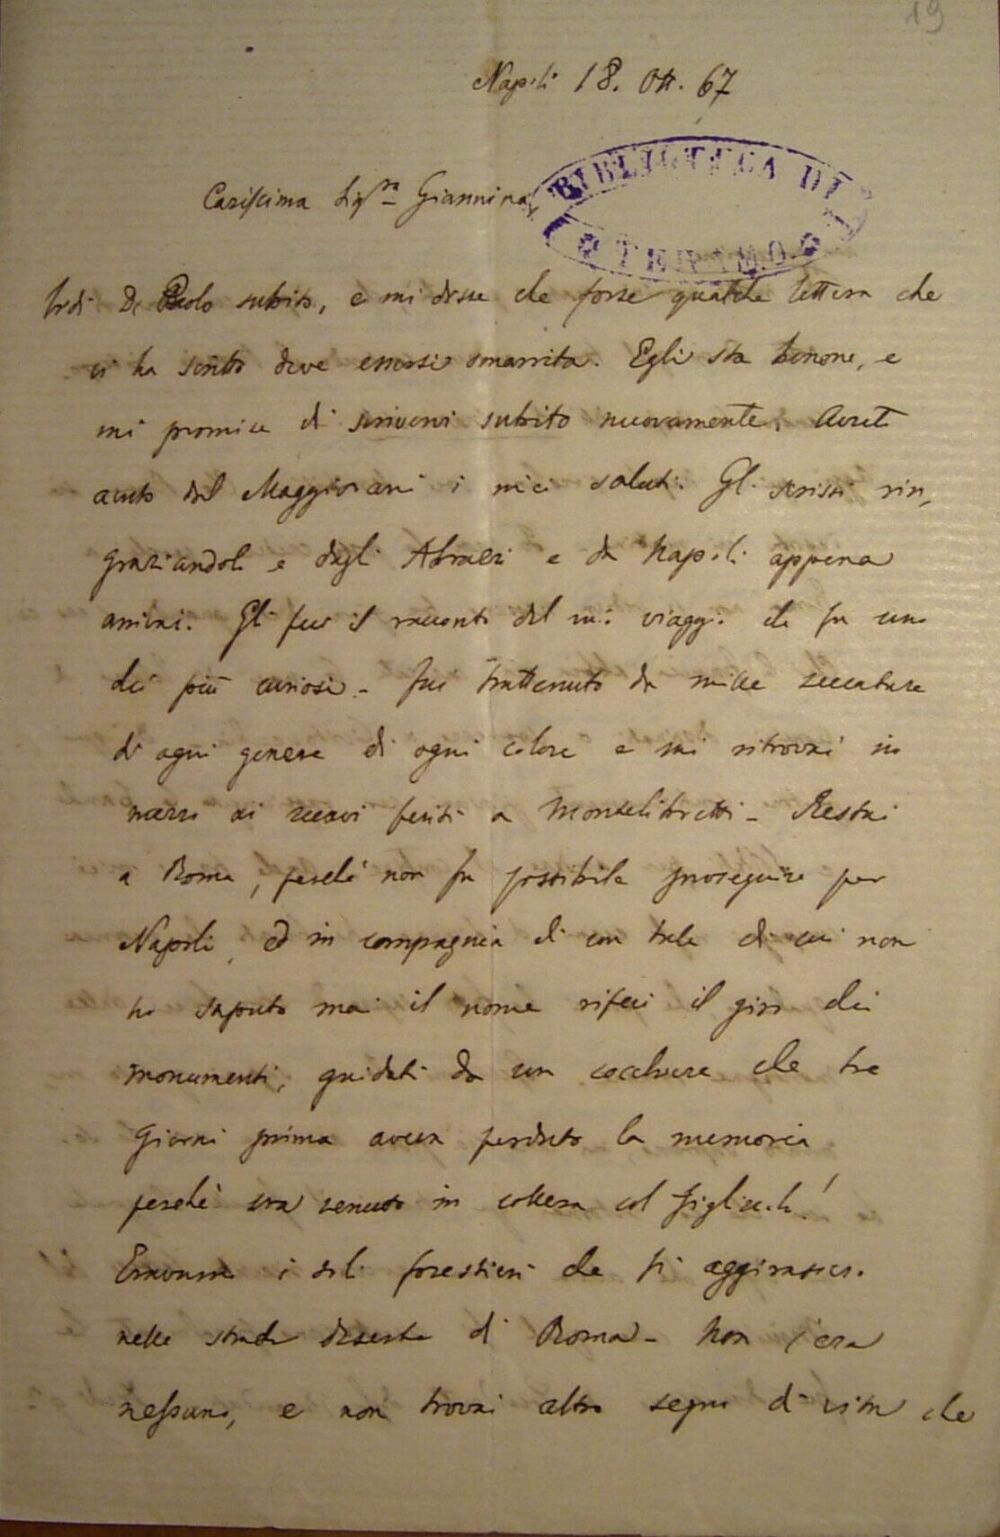 19
Napoli 18. Ott. 67
BIBLIOTECA DI
TERAMO
Carissima Sigra Giannina
Vidi De Paolo subito, e mi disse che forse qualche lettera che
vi ha scritto deve essersi smarrita. Egli sta benone, e
mi promise di scrivervi subito nuovamente. Avrete
avuto dal Maggiorani i miei saluti. Gli scrissi rin,
graziandolo e dagli Abruzzi e da Napoli appena
arrivai. Gli feci il racconto del mio viaggio che fu uno
dei più curiosi - fui trattenuto da mille seccature
di ogni genere di ogni colore e mi ritrovai in
mezzo ai zuavi feriti a Montelibretti - Restai
a Roma, perchè non fu possibile proseguire per
Napoli, ed in compagnia di un tale di cui non
ho saputo mai il nome rifeci il giro dei
monumenti, guidati da un cocchiere che tre
giorni prima aveva perduto la memoria
perchè era venuto in collera col figliuolo!
Eravamo i soli forestieri che si aggirassero
nelle strade deserte di Roma - Non c'era
nessuno, e non trovai altro segno di vita che